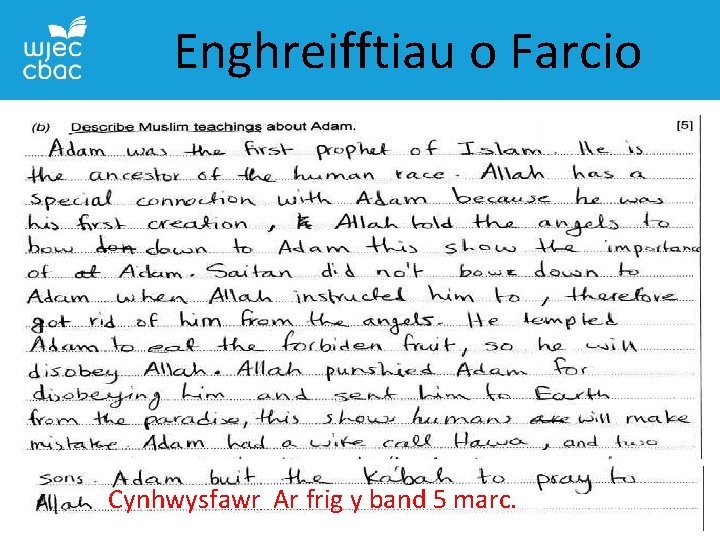 wjec
cbac
Enghreifftiau o Farcio
(b) Describe Muslim teachings about Adam. [5]
Adam was the first prophet of Islam. He is
the ancestor of the human race. Allah has a
special connection with Adam because he was
his first creation, Allah told the angels to
bow down to Adam this show the importance
of Adam. Saitan did no't bow down to
Adam when Allah instructed him to, therefore
got rid of him from the angels. He tempted
Adam to eat the forbiden fruit, so he will
disobey Allah. Allah punshied Adam for
disobeying him and sent him to Earth
from the paradise, this show humans will make
mistake. Adam had a wife call Hawa, and two
sons. Adam buit the Ka'bah to pray to
Allah
Cynhwysfawr Ar frig y band 5 marc.